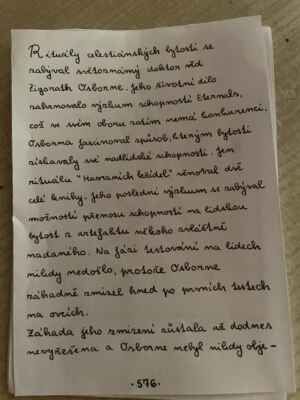 Rituály celestiánských bytostí se
zabýval světoznámý doktor věd
Zigorath Osborne. Jeho životní dílo
zahrnovalo výzkum schopností Eternals,
což ve svém oboru zatím nemá konkurenci.
Osborna fascinoval způsob, kterým bytosti
získávaly své nadlidské schopnosti. Jen
rituálu "Harraních křídel" věnoval dvě
celé knihy. Jeho poslední výzkum se zabýval
možností přenosu schopností na lidskou
bytost z artefaktu někoho zvláštně
nadaného. Na fázi testování na lidech
nikdy nedošlo, protože Osborne
záhadně zmizel hned po prvních testech
na ovcích.
Záhada jeho zmizení zůstala až dodnes
nevyřešena a Osborne nebyl nikdy obje-
·576·